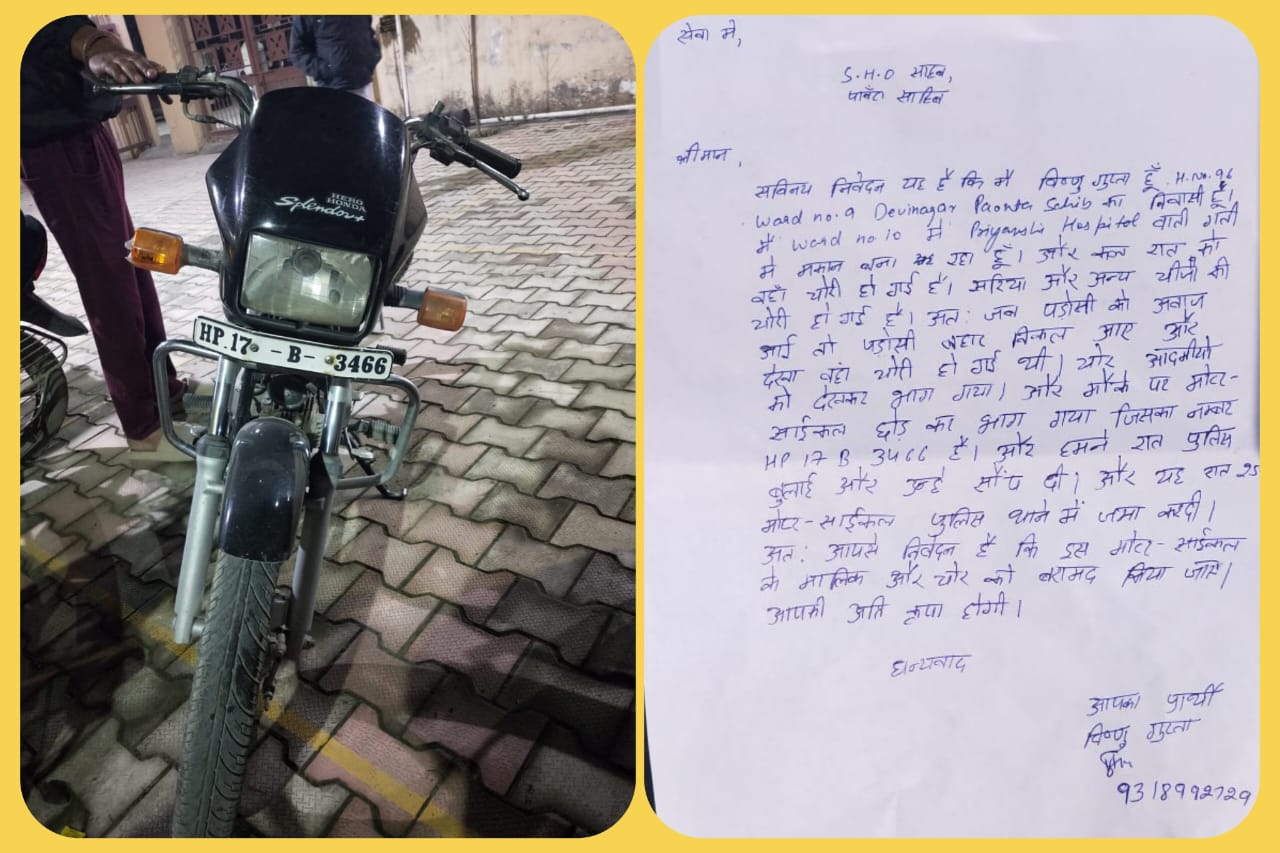 HERO
HONDA
Splendor+
HP.17 -B- 3466
सेवा मे,
S.H.O साहब,
पावँटा साहिब
श्रीमान,
सविनय निवेदन यह है कि मै विष्णु गुप्ता हूँ. H.No. 96
ward no.9 Devinagar Paonta Sahib का निवासी हूँ।
मै ward no 10 मे Priyanshi Hospital वाली गली
मे मकान बना रहा हूँ। और कल रात को
वहाँ चोरी हो गई है। सरिया और अन्य चीजो की
चोरी हो गई है। अत: जब पडोसी को अवाज
आई तो पडोसी बहार निकल आए और
देखा वहां चोरी हो गई थी। चोर आदमीयो
को देखकर भाग गया। और मौके पर मोटर-
साईकल छोड़ कर भाग गया जिसका नम्बर
HP 17 B 3466 है। और हमने रात पुलिस
बुलाई और उन्हे सौंप दी। और यह रात 25
मोटर-साईकल पुलिस थाने में जमा करदी।
अत: आपसे निवेदन है कि इस मोटर-साईकल
के मालिक और चोर को बरामद किया जाए।
आपकी अति कृपा होगी।
धन्यवाद
आपका प्रार्थी
विष्णु गुप्ता
9318992729